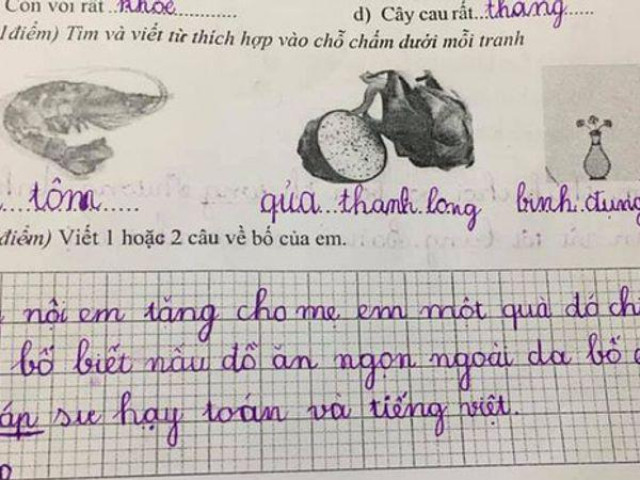 Con voi rất..khỏe............
d) Cây cau rất...thẳng......
1điểm) Tìm và viết từ thích hợp vào chỗ chấm dưới mỗi tranh
....tôm......
qủa...thanh.long
bình.đựng
điểm) Viết 1 hoặc 2 câu về bố của em.
nội em tặng cho mẹ em một quà đó ch
bố biết nấu đồ ăn ngọn ngoài da bố
áp sư hạy toán và tiếng việt.